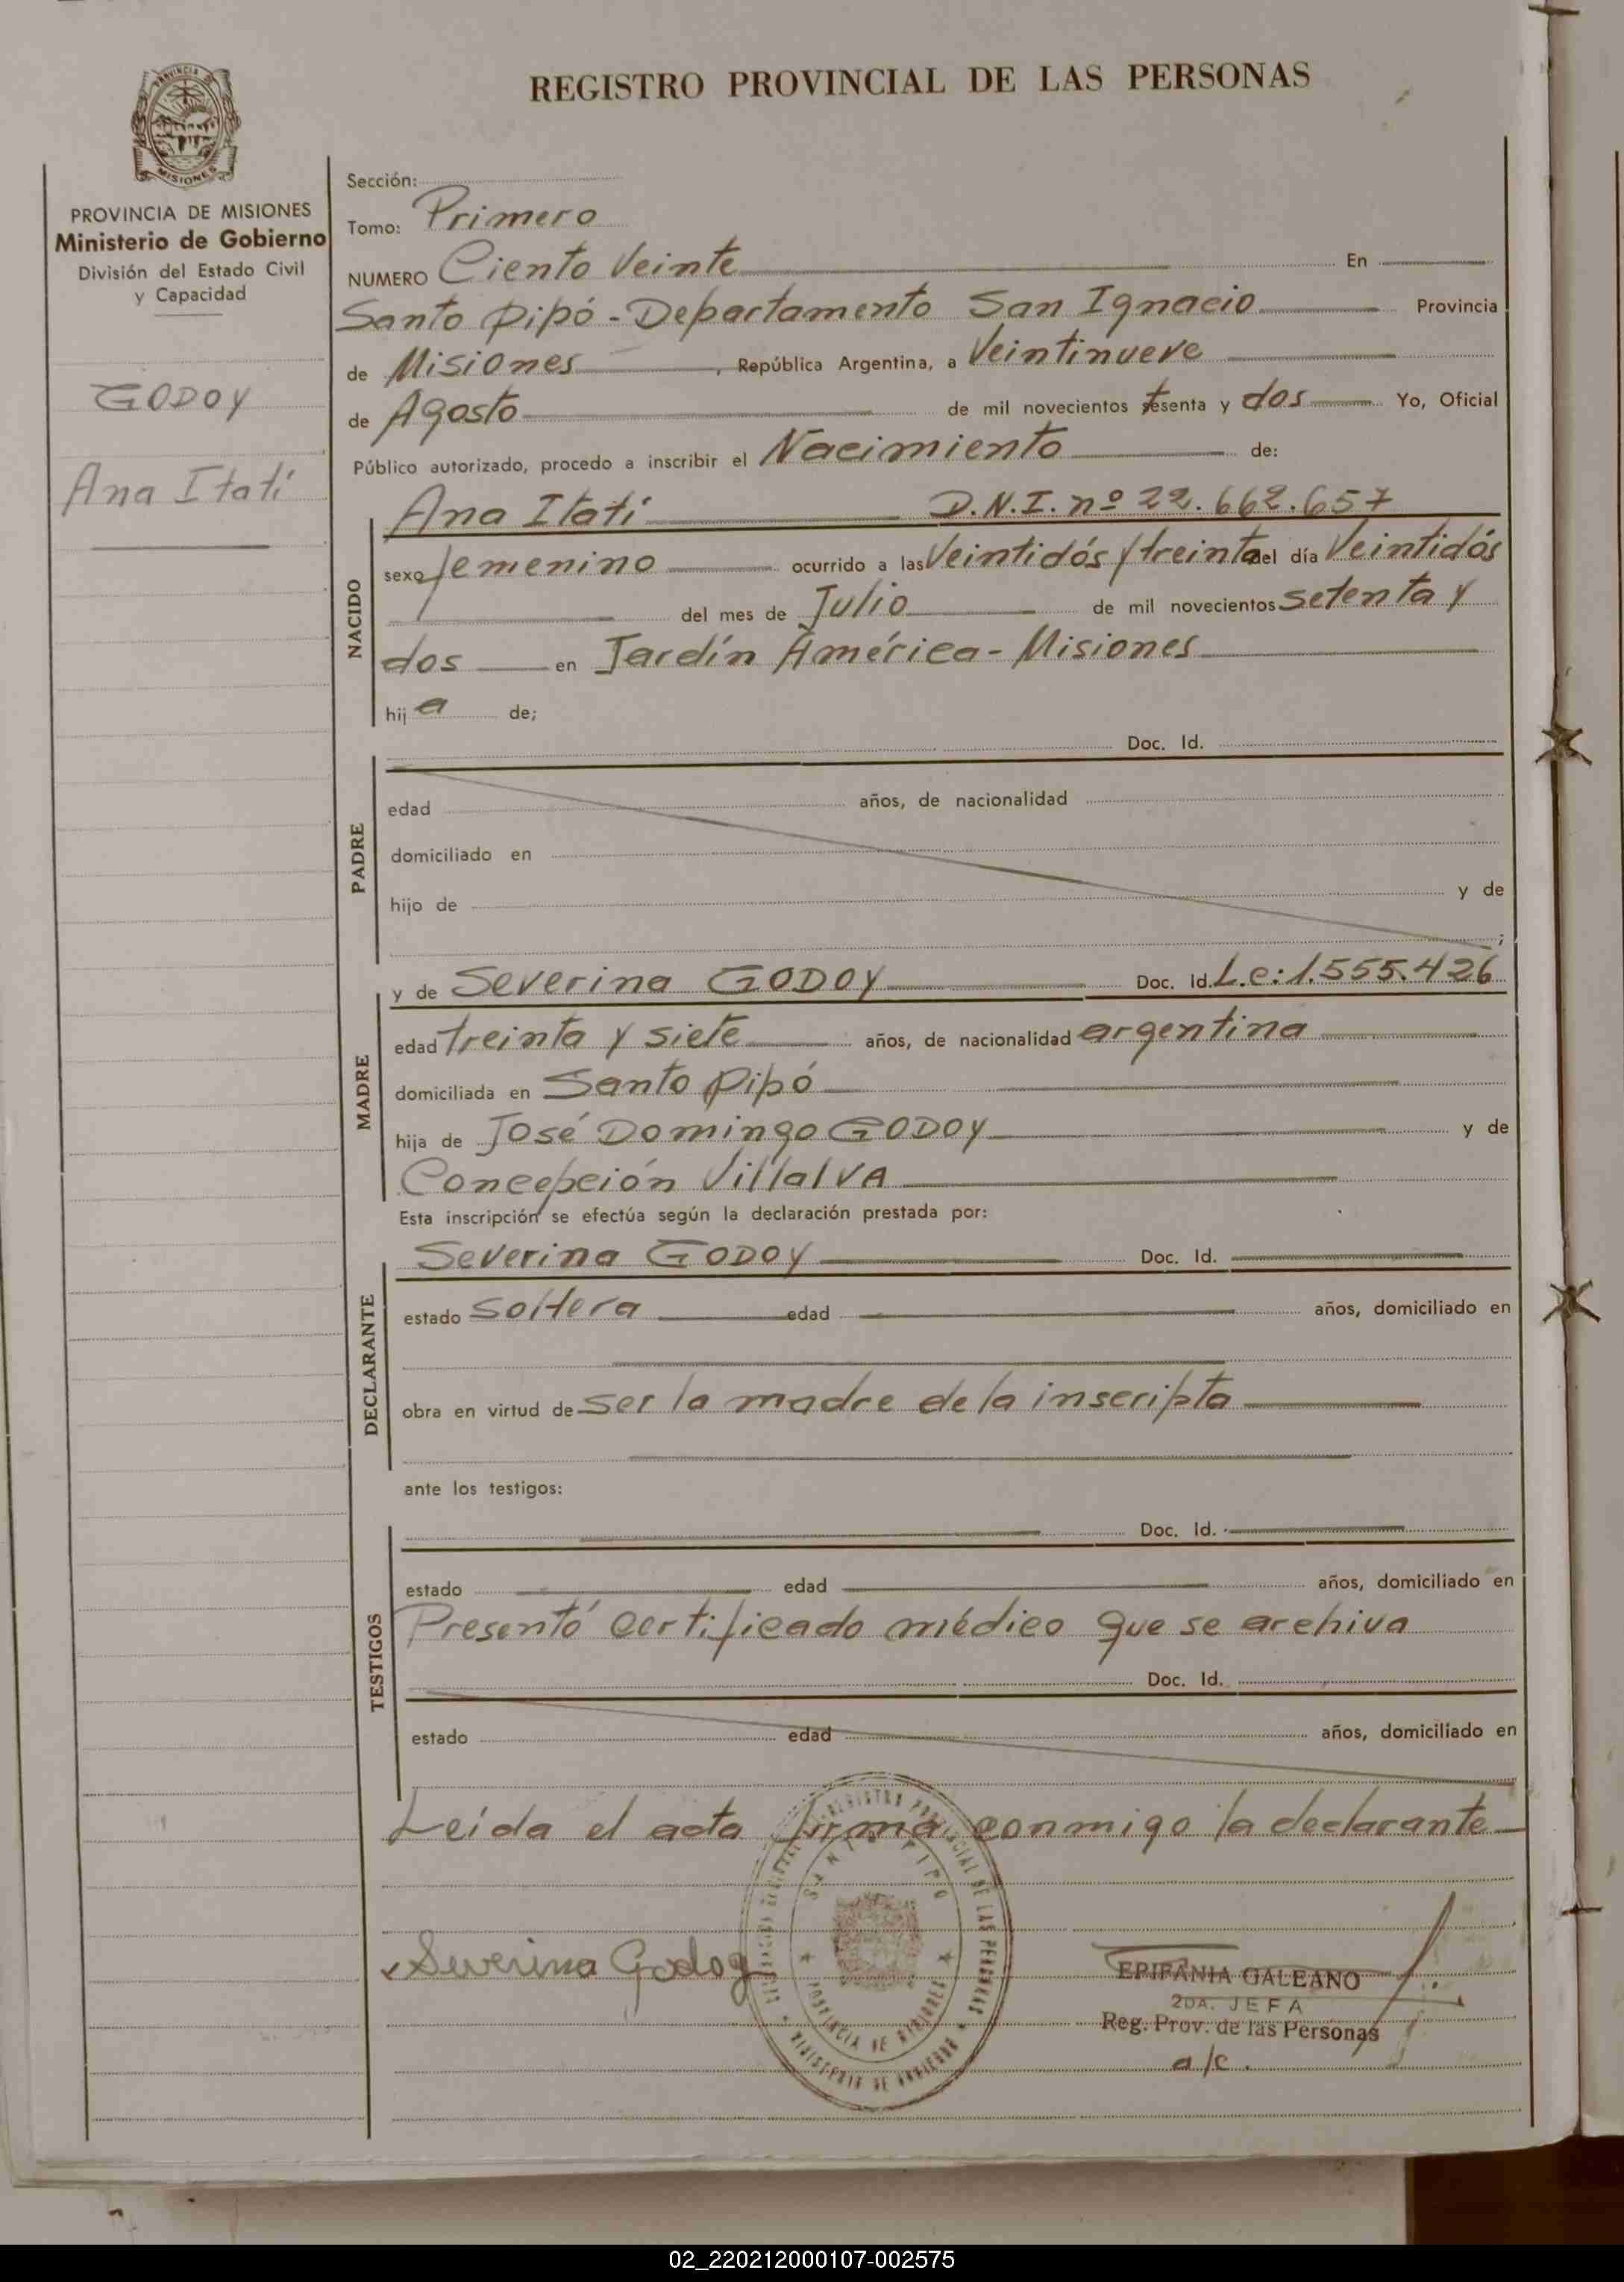 REGISTRO PROVINCIAL DE LAS PERSONAS
PROVINCIA
MISIONES
PROVINCIA DE MISIONES
Ministerio de Gobierno
División del Estado Civil
y Capacidad
GODOY
Ana Itatí
Sección:
Tomo: Primero
NUMERO Ciento Veinte En
Santo Pipó - Departamento San Ignacio Provincia
de Misiones, República Argentina, a Veintinueve
de Agosto de mil novecientos setenta y dos Yo, Oficial
Público autorizado, procedo a inscribir el Nacimiento de:
NACIDO
Ana Itatí D.N.I. nº 22.662.657
sexo femenino ocurrido a las Veintidós y treinta del día Veintidós
del mes de Julio de mil novecientos setenta y
dos en Jardín América - Misiones
hij a de;
PADRE
Doc. Id.
edad años, de nacionalidad
domiciliado en
hijo de y de
;
MADRE
y de Severina GODOY Doc. Id. L.C: 1.555.426
edad treinta y siete años, de nacionalidad argentina
domiciliada en Santo Pipó
hija de José Domingo GODOY y de
Concepción VillalVA
Esta inscripción se efectúa según la declaración prestada por:
DECLARANTE
Severina GODOY Doc. Id.
estado soltera edad años, domiciliado en
obra en virtud de ser la madre de la inscripta
ante los testigos:
TESTIGOS
Doc. Id.
estado edad años, domiciliado en
Presentó certificado médico que se archiva
Doc. Id.
estado edad años, domiciliado en
Leída el acta firma conmigo la declarante
SANTO PIPO
PROVINCIA DE MISIONES
MINISTERIO DE GOBIERNO
REGISTRO PROVINCIAL DE LAS PERSONAS
Severina Godoy
EPIFANIA GALEANO
2DA. JEFA
Reg. Prov. de las Personas
a/c.
02_220212000107-002575